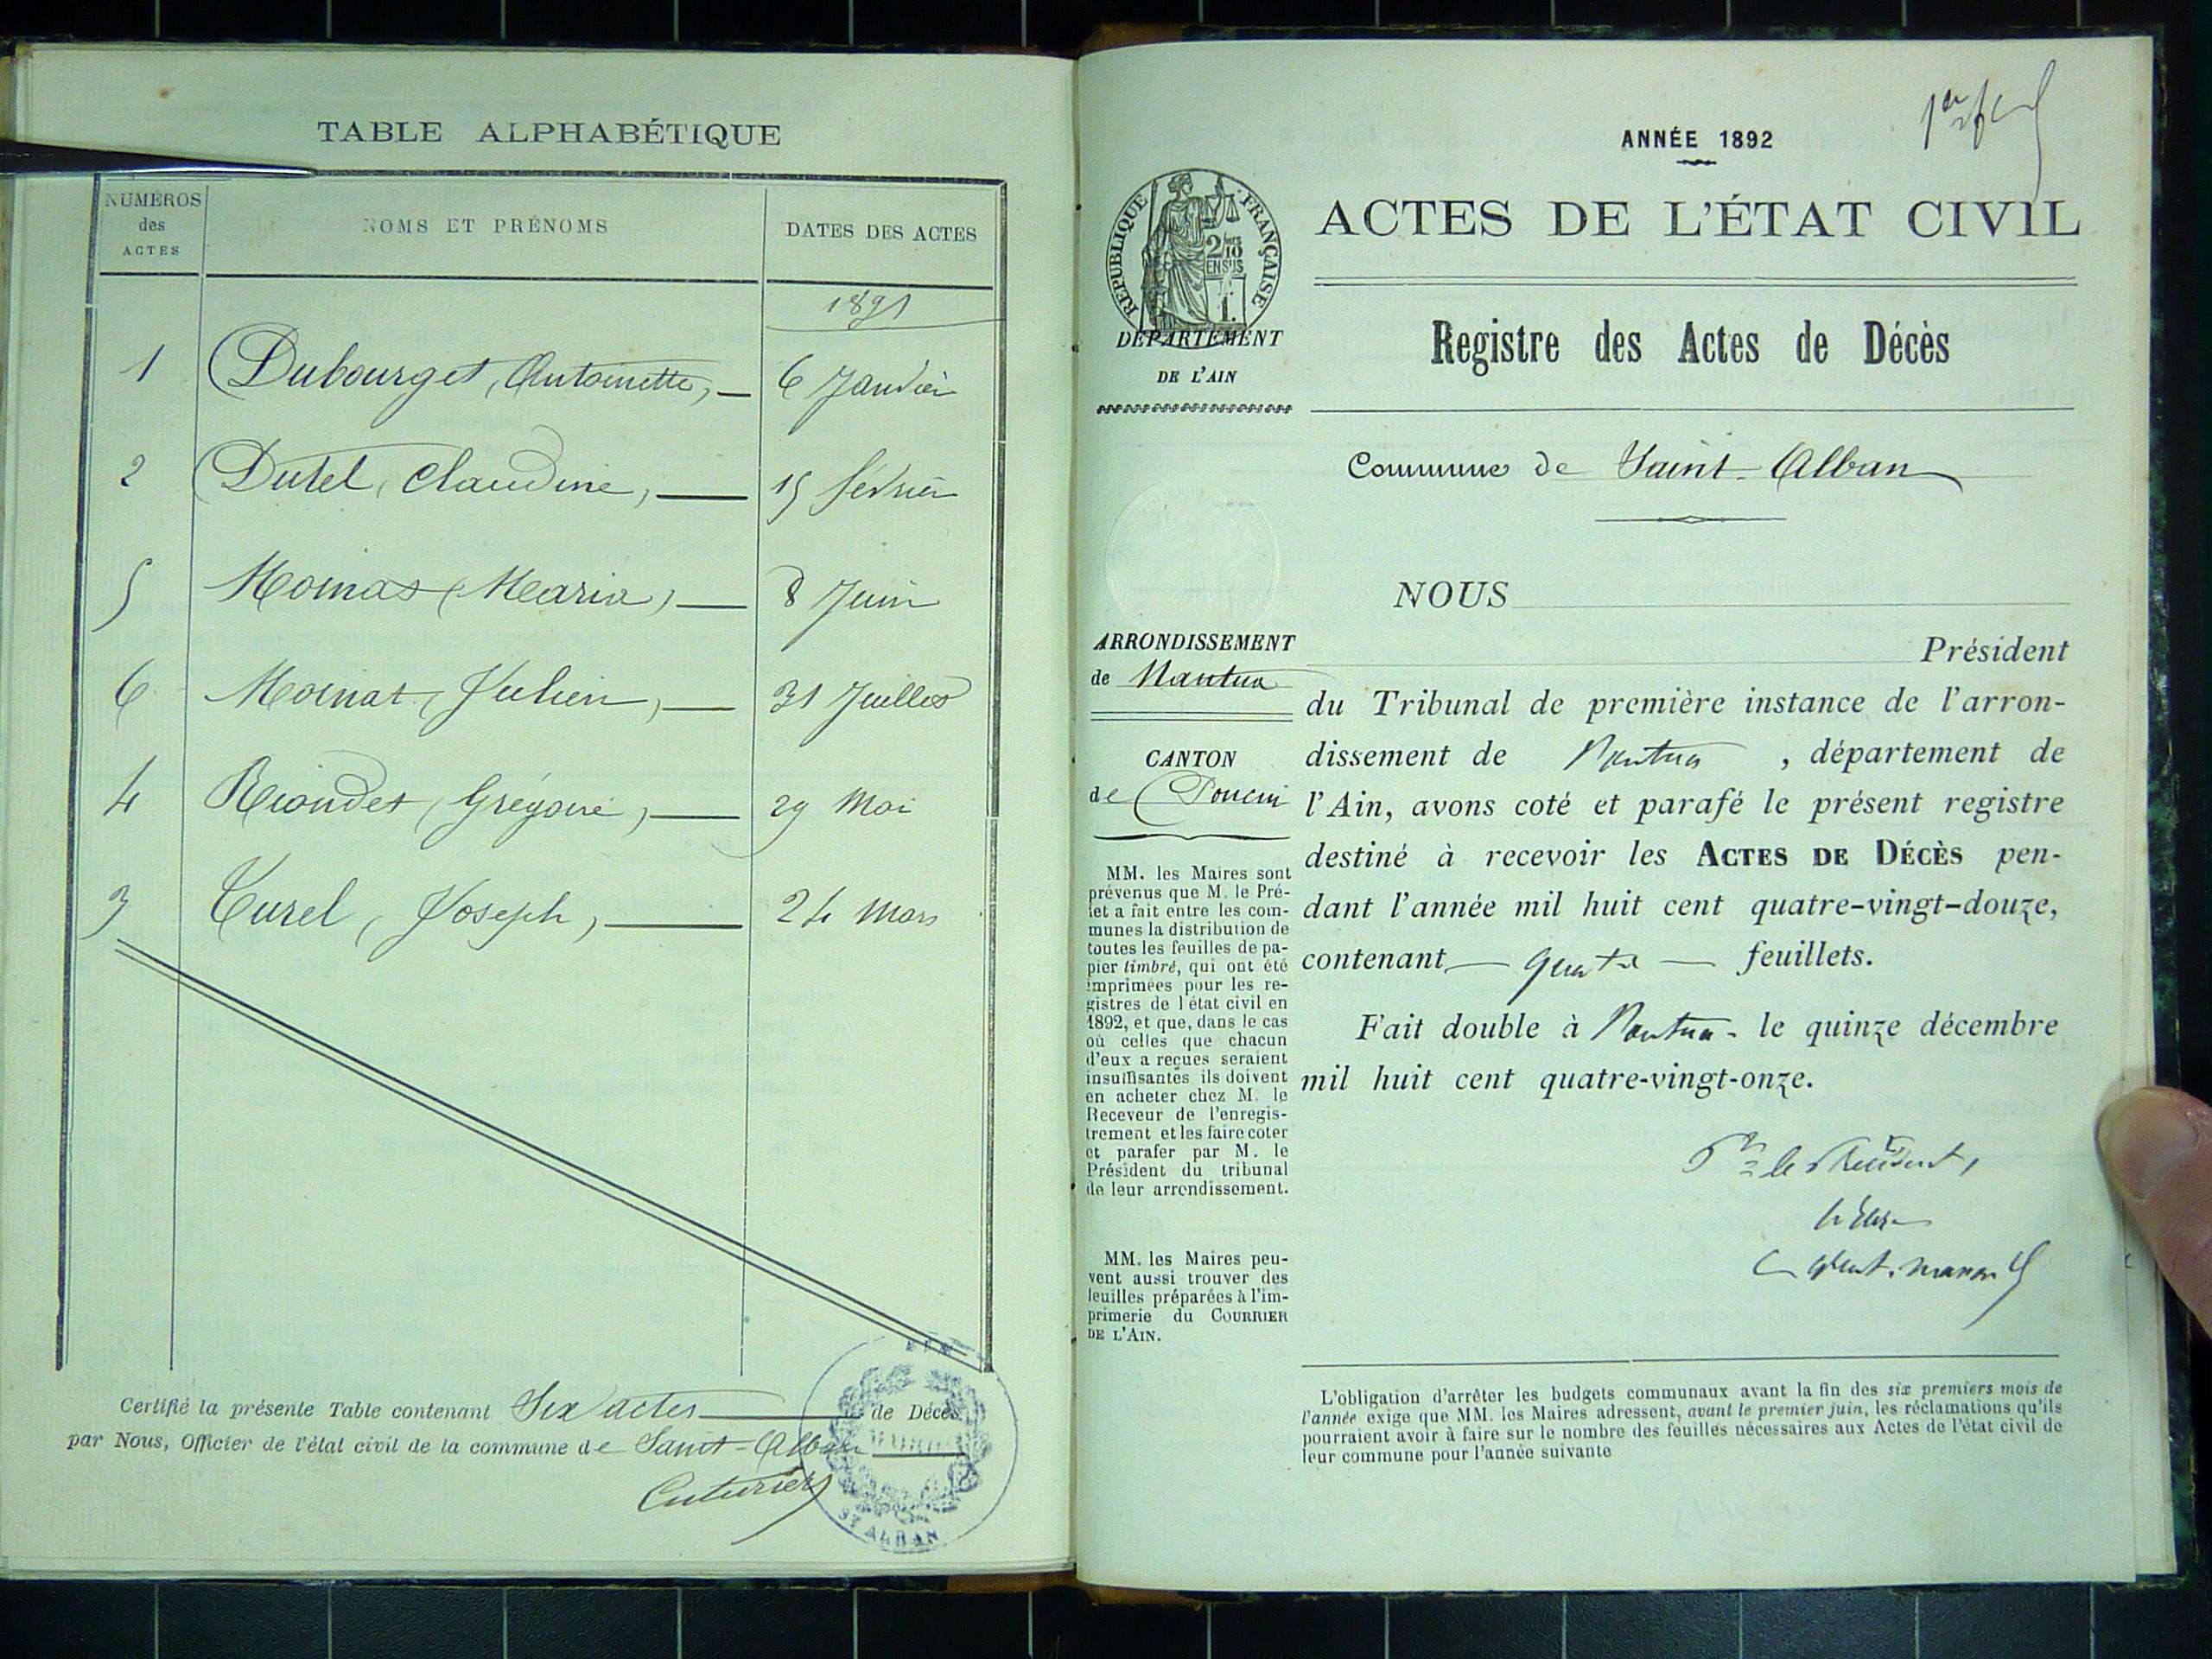 TABLE ALPHABÉTIQUE
NUMÉROS
des
ACTES
NOMS ET PRÉNOMS
DATES DES ACTES
1891
1 Dubourget, Antoinette, — 6 Janvier
2 Dutel, Claudine, — 15 février
5 Moinat, Maria, — 8 Juin
6 Moinat, Julien, — 31 Juillet
4 Riondet, Grégoire, — 29 Mai
3 Turel, Joseph, — 24 Mars
Certifié la présente Table contenant Six actes de Décès
par Nous, Officier de l'état civil de la commune de Saint-Alban
Cuturier
ST ALBAN
1er f
ANNÉE 1892
RÉPUBLIQUE FRANÇAISE
2/10
EN SUS
ACTES DE L'ÉTAT CIVIL
DÉPARTEMENT
DE L'AIN
Registre des Actes de Décès
Commune de Saint-Alban
NOUS
ARRONDISSEMENT
de Nantua
CANTON
de Poncin
MM. les Maires sont
prévenus que M. le Pré-
fet a fait entre les com-
munes la distribution de
toutes les feuilles de pa-
pier timbré, qui ont été
imprimées pour les re-
gistres de l'état civil en
1892, et que, dans le cas
où celles que chacun
d'eux a reçues seraient
insuffisantes ils doivent
en acheter chez M. le
Receveur de l'enregis-
trement et les faire coter
et parafer par M. le
Président du tribunal
de leur arrondissement.
MM. les Maires peu-
vent aussi trouver des
feuilles préparées à l'im-
primerie du COURRIER
DE L'AIN.
Président
du Tribunal de première instance de l'arron-
dissement de Nantua, département de
l'Ain, avons coté et parafé le présent registre
destiné à recevoir les ACTES DE DÉCÈS pen-
dant l'année mil huit cent quatre-vingt-douze,
contenant — quatre — feuillets.
Fait double à Nantua - le quinze décembre
mil huit cent quatre-vingt-onze.
Pr le Président,
L'obligation d'arrêter les budgets communaux avant la fin des six premiers mois de
l'année exige que MM. les Maires adressent, avant le premier juin, les réclamations qu'ils
pourraient avoir à faire sur le nombre des feuilles nécessaires aux Actes de l'état civil de
leur commune pour l'année suivante